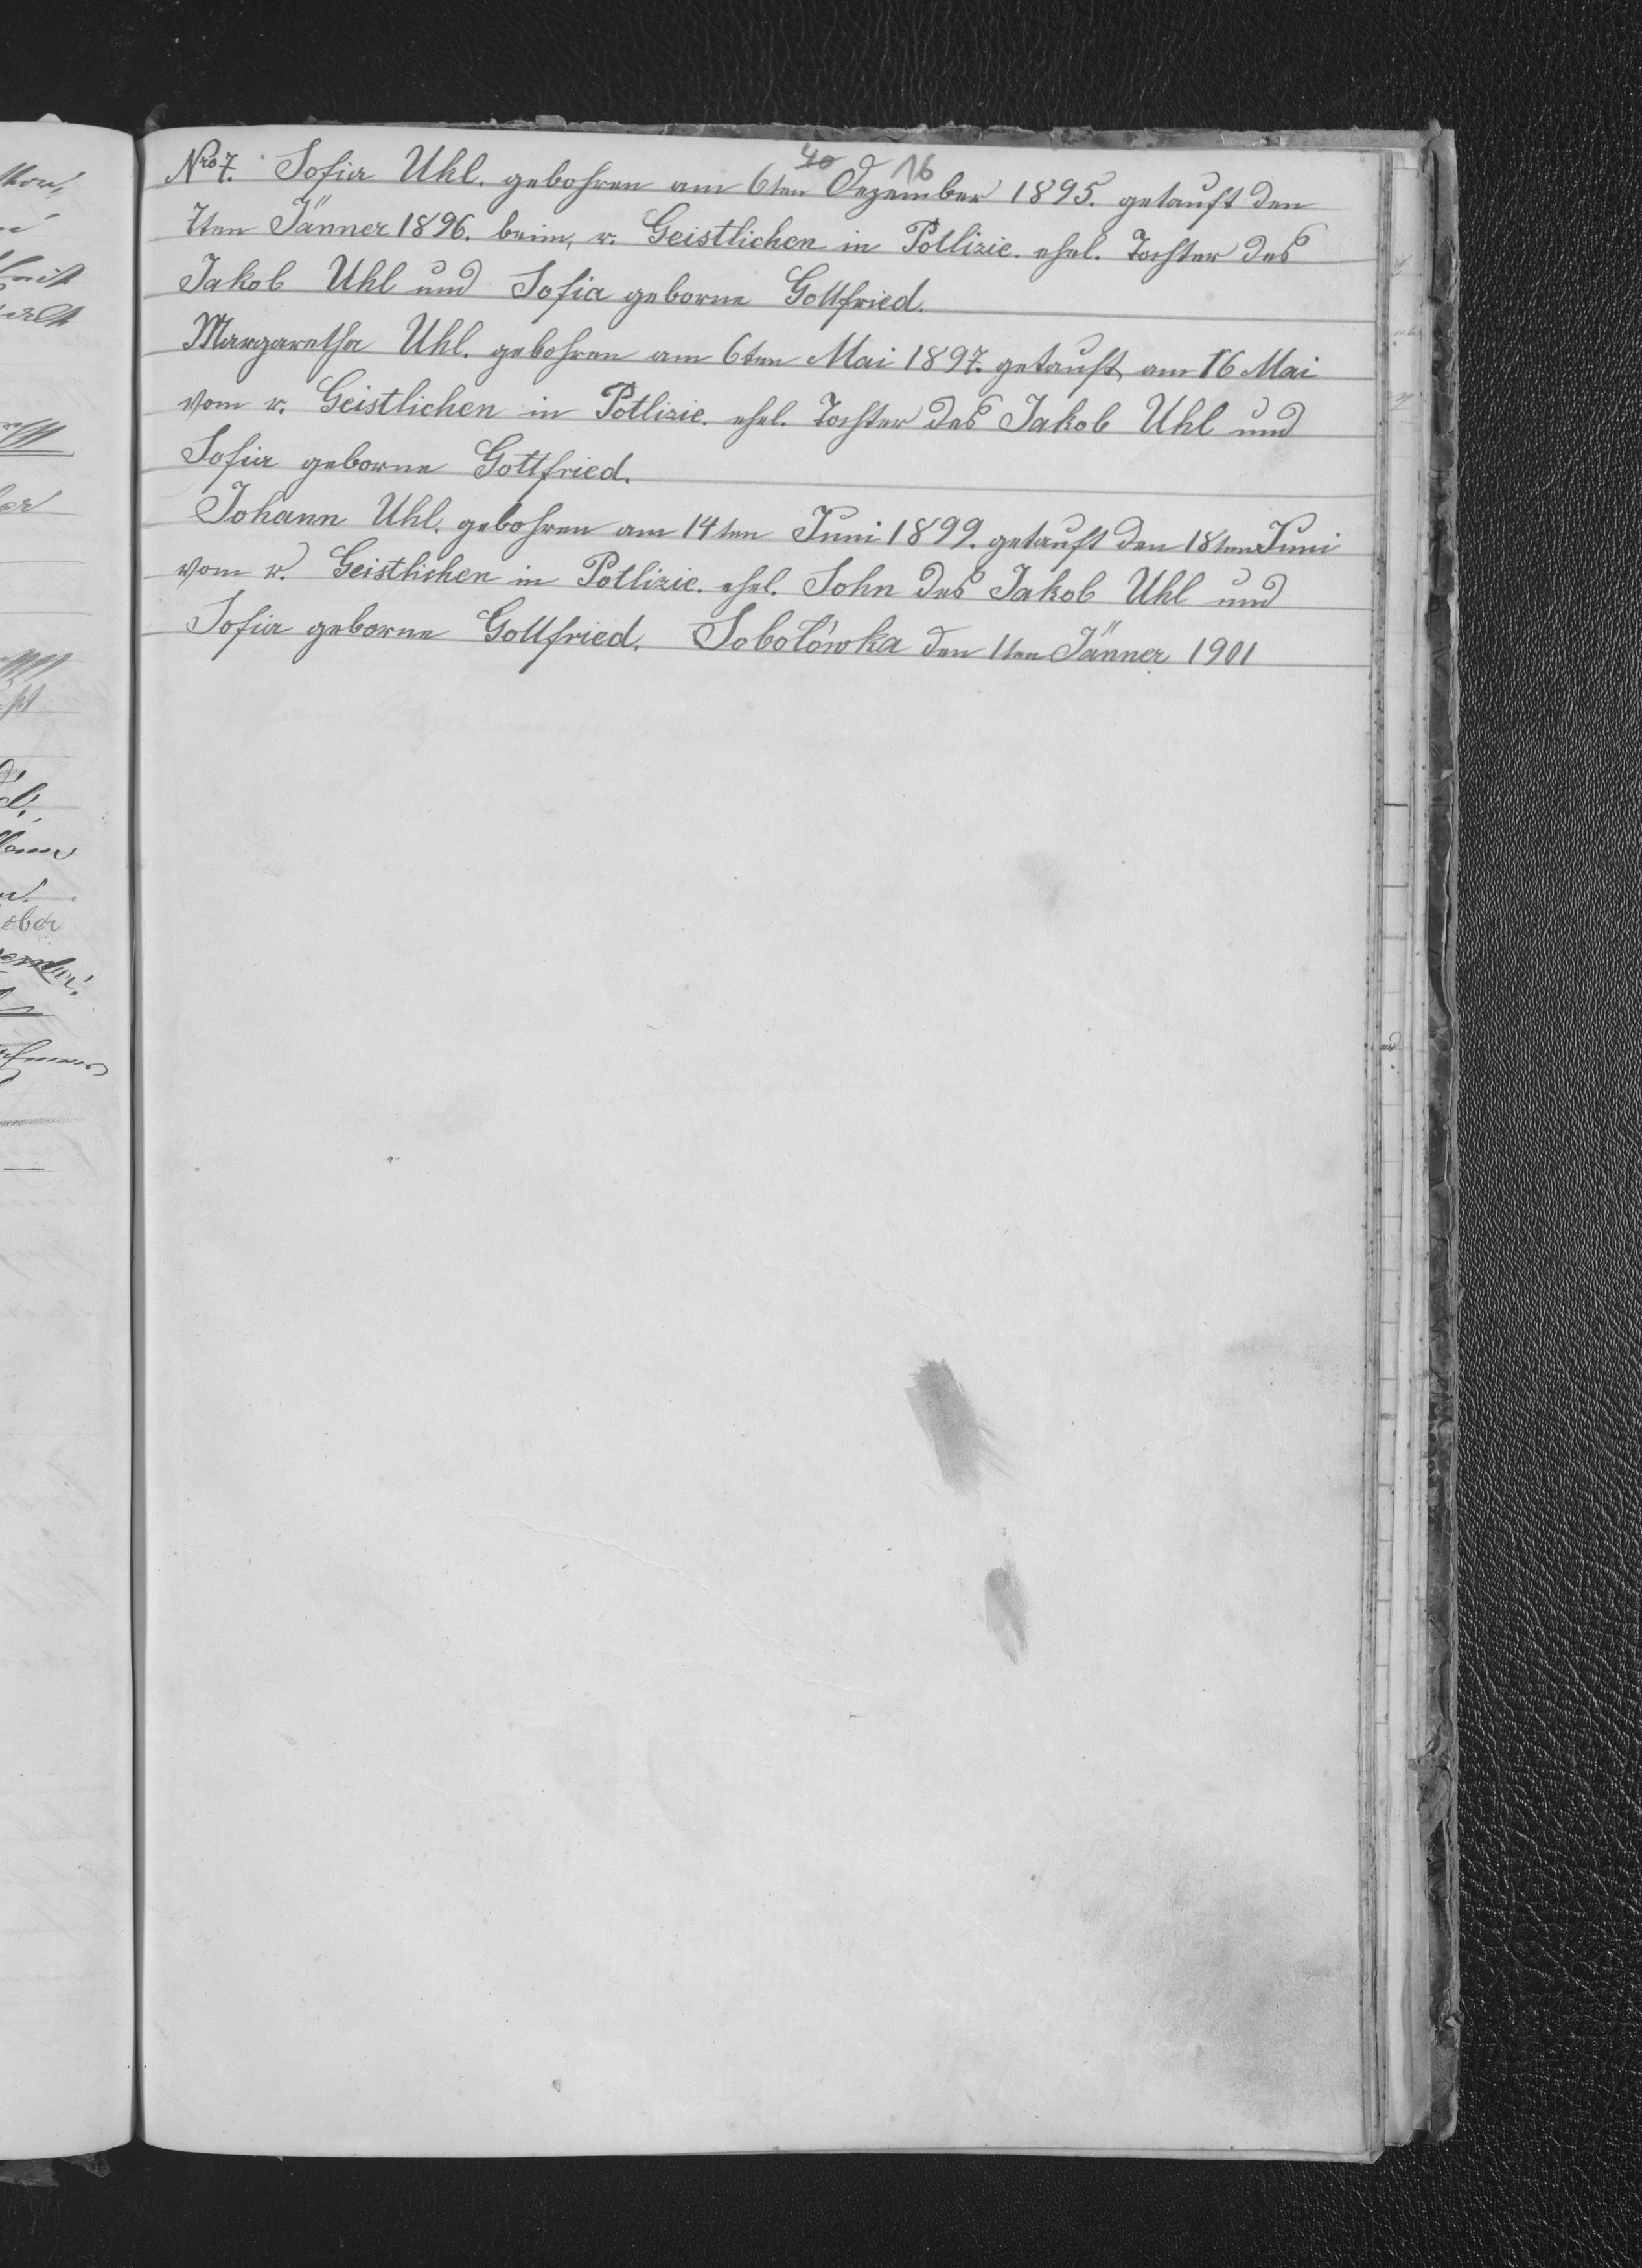 40 16
Nro 7. Sofia Uhl. gebohren am 6ten Dezember 1895. getauft den
7ten Jänner 1896. beim, r. Geistlichen in Potlizie. ehel. Tochter des
Jakob Uhl und Sofia geborne Gottfried.
Margaretha Uhl. gebohren am 6ten Mai 1897. getauft am 16 Mai
vom r. Geistlichen in Potlizie. ehel. Tochter des Jakob Uhl und
Sofia geborne Gottfried.
Johann Uhl. gebohren am 14ten Juni 1899. getauft den 18ten Juni
vom r. Geistlichen in Potlizie. ehel. Sohn des Jakob Uhl und
Sofia geborne Gottfried. Sobolówka den 1ten Jänner 1901